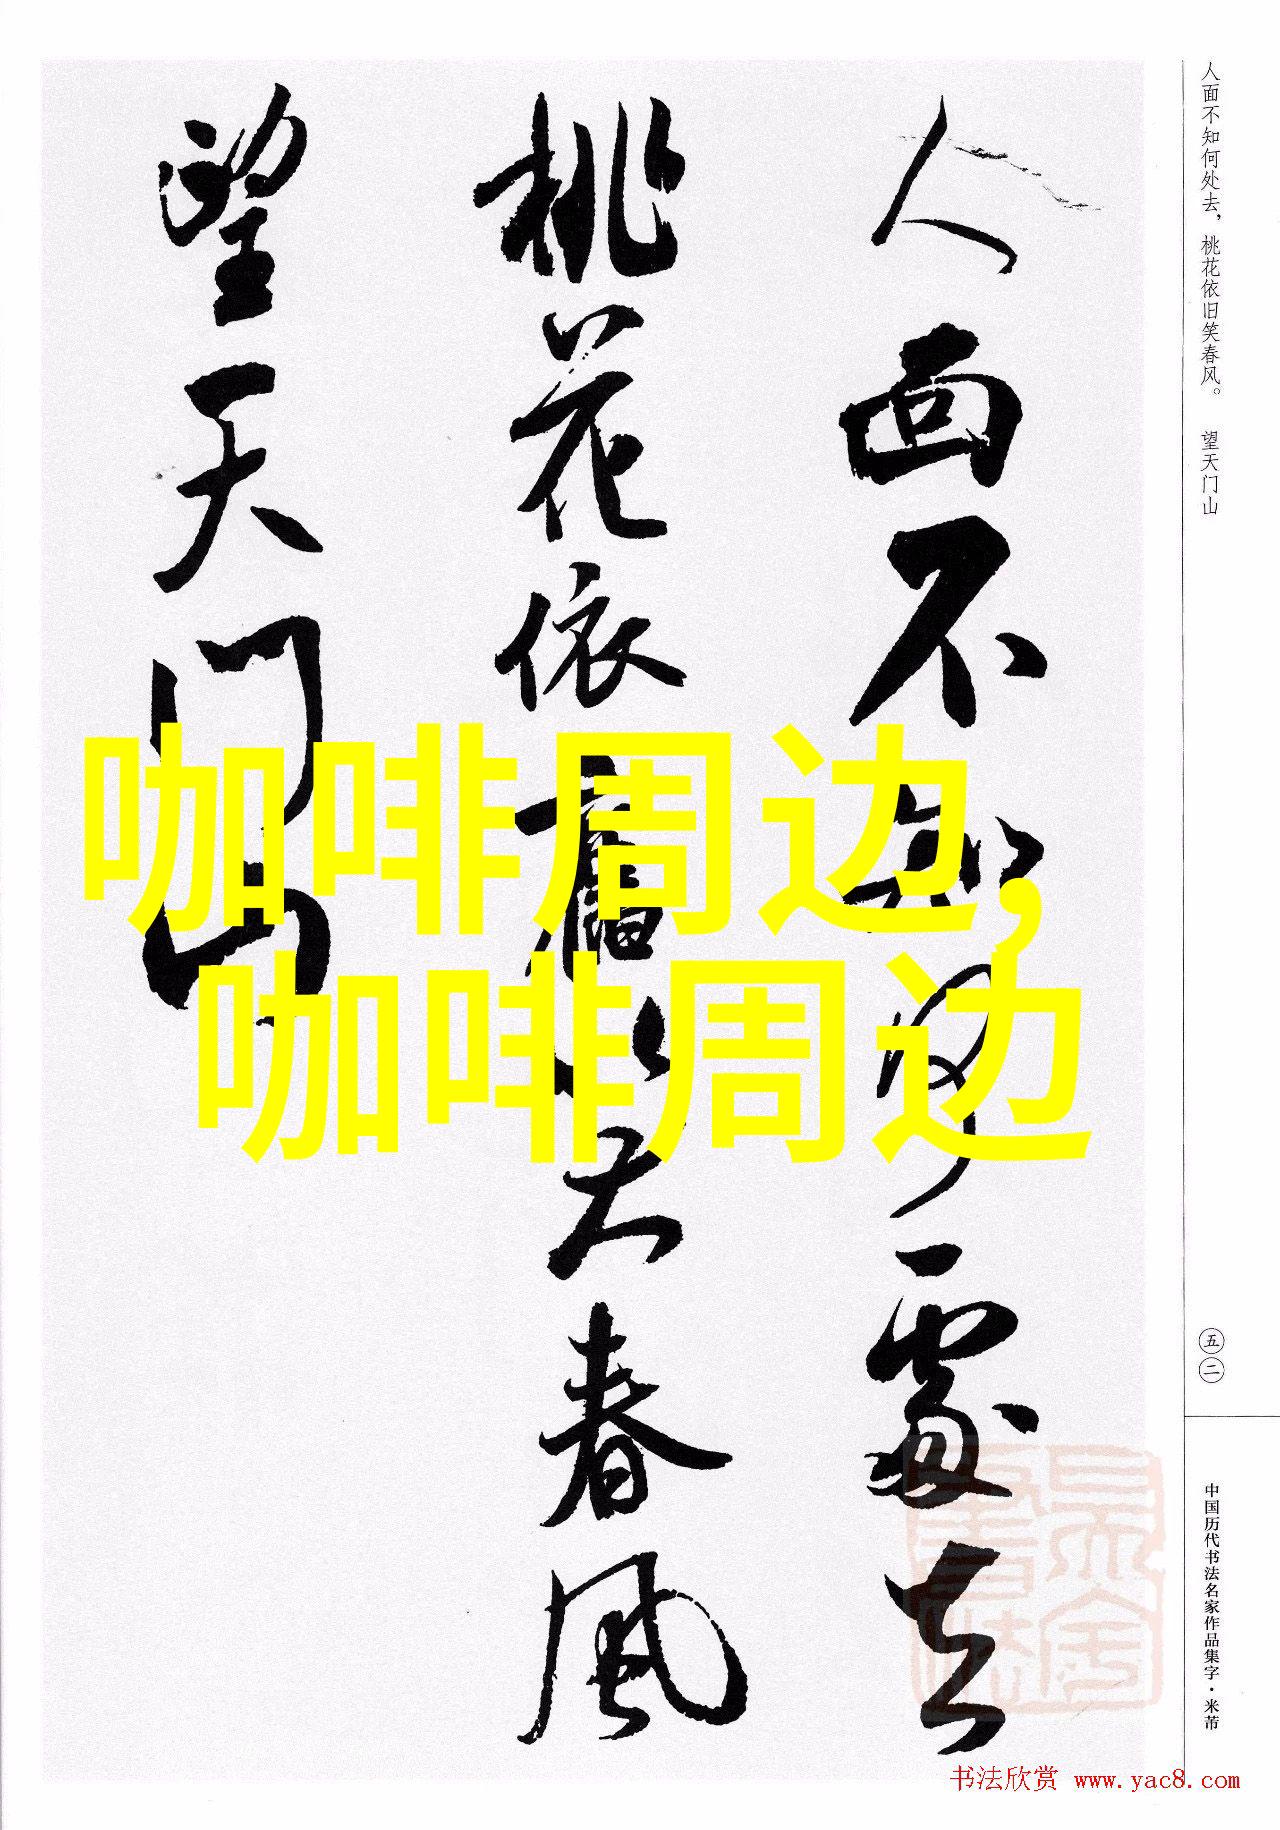 人面不知何处去，桃花依旧笑春风。 望天门山
人面不知何處去
桃花依舊笑春風
望天门山
咖啡周边，
咖啡周边
五二
中国历代书法名家作品集字·米芾
书法欣赏 www.yac8.com